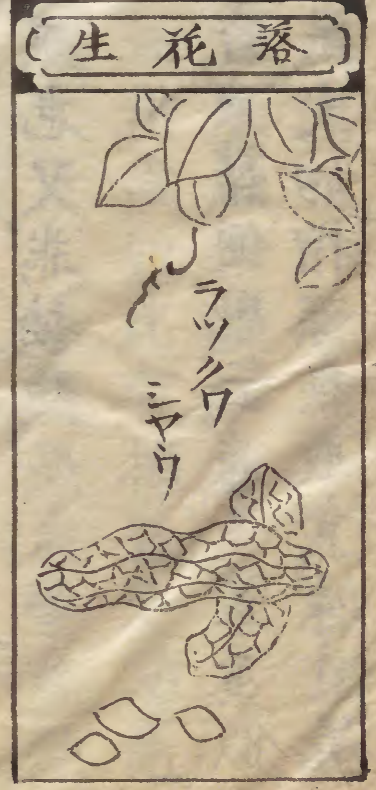 落花生
ラツクワ
シヤウ